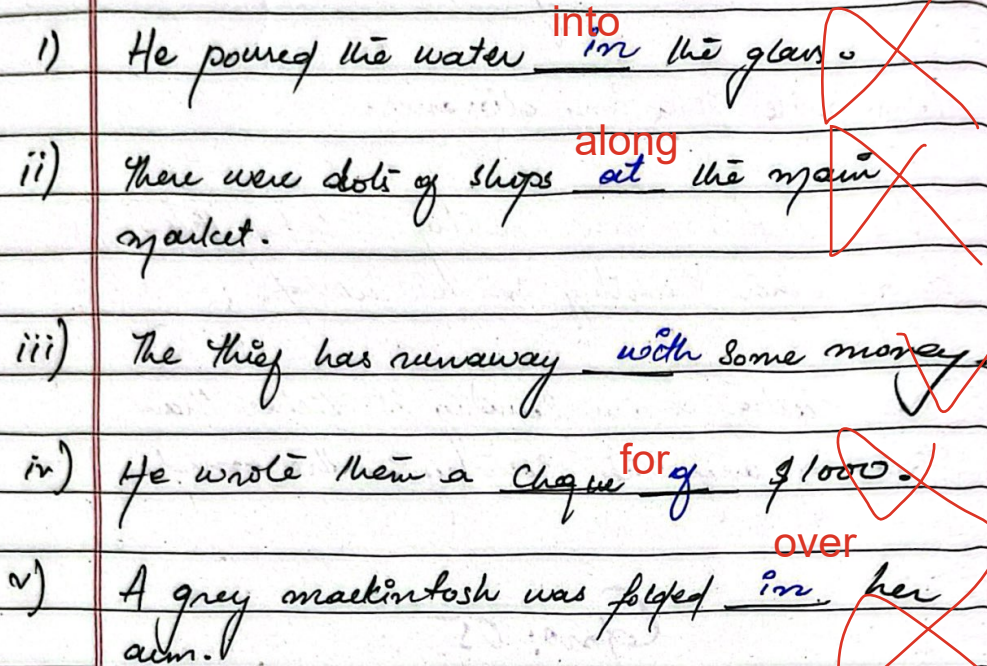 into
i) He poured the water in the glass.
along
ii) There were dots of shops at the main
market.
iii) The thief has runaway with some money.
for
iv) He wrote them a Cheque of $1000.
over
v) A grey mackintosh was folded in her
arm.